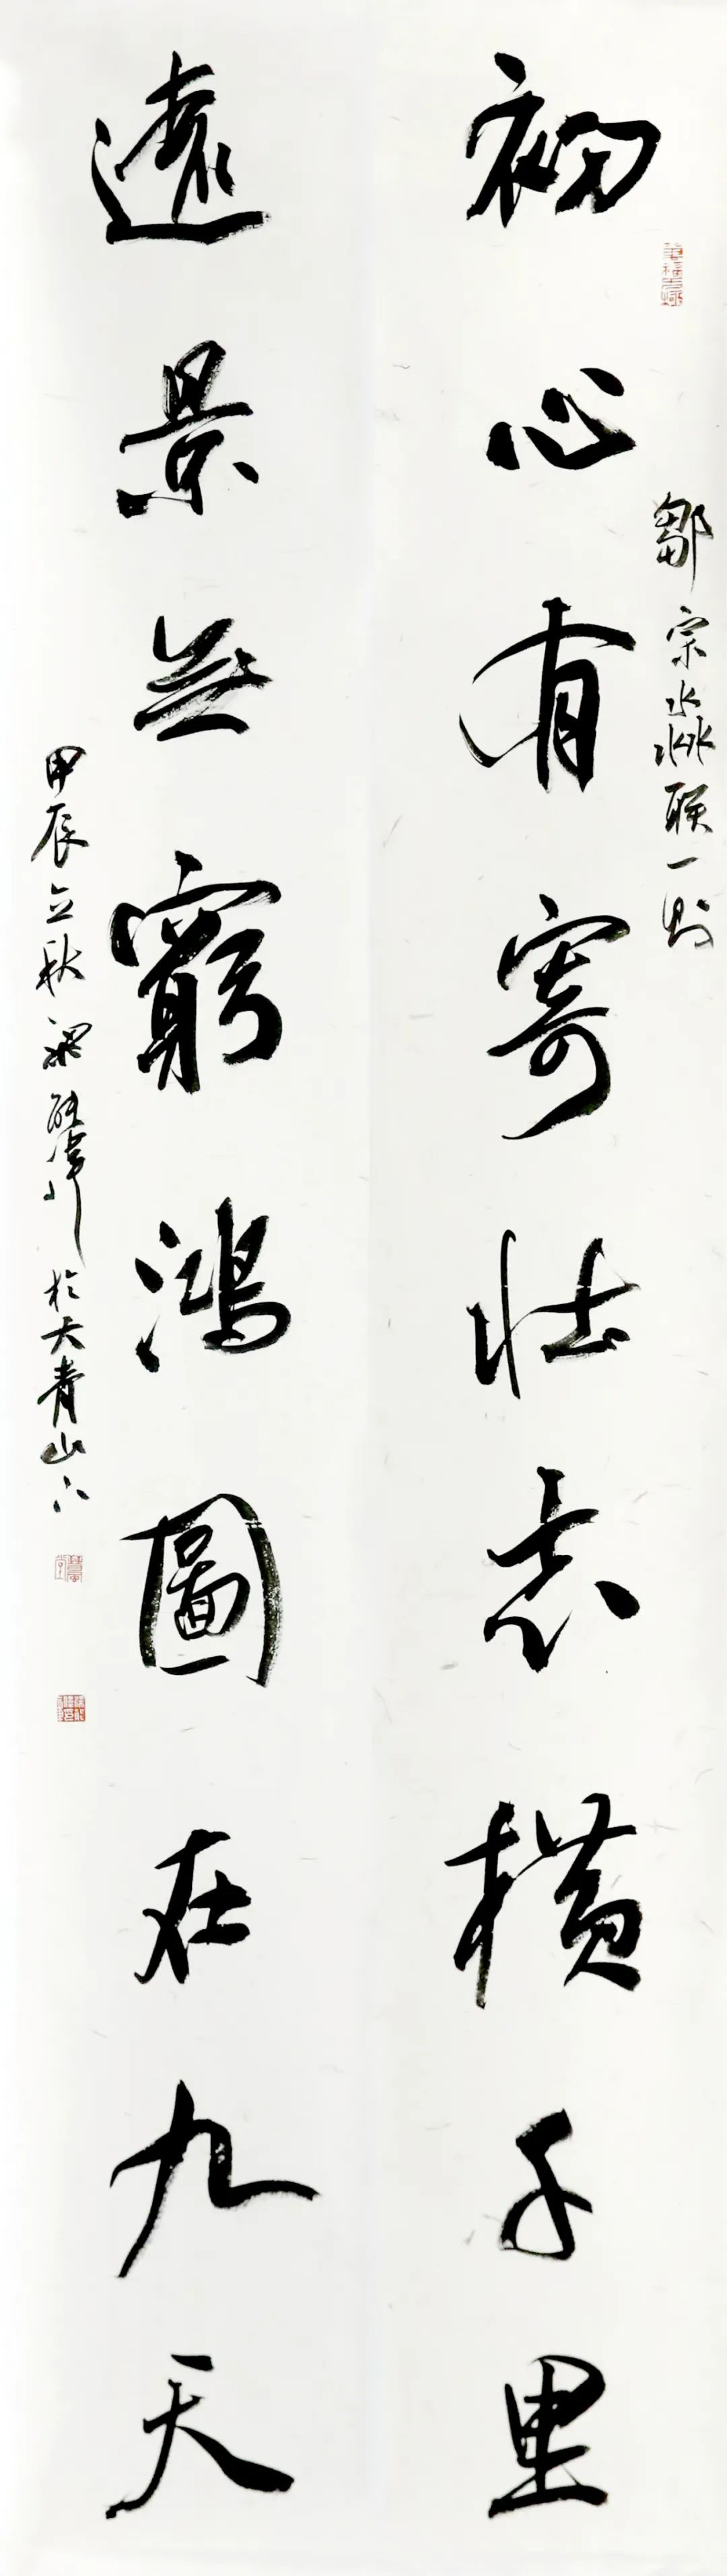 初心有寄壮志横千里
鄒宗淼联一則
遠景無窮鴻圖在九天
甲辰立秋 於大青山下